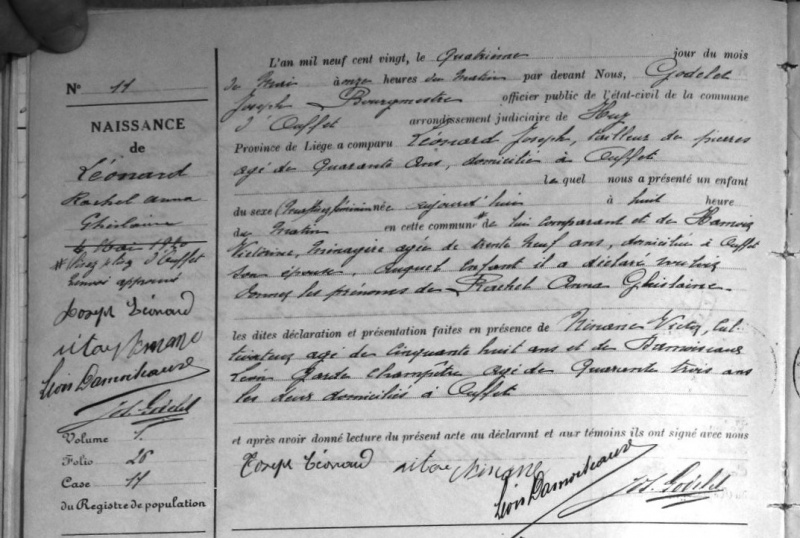 Nº 11
NAISSANCE
de
Léonard
Rachel Anna
Ghislaine
4 Mai 1920
Joseph Léonard
Victor Ninane
Léon Damoiseaux
Jh. Godelet
Volume 1
Folio 26
Case 11
du Registre de population
L'an mil neuf cent vingt, le Quatrième jour du mois
de Mai à onze heures du Matin par devant Nous, Godelet
Joseph Bourgmestre officier public de l'état-civil de la commune
d'Ouffet arrondissement judiciaire de Huy
Province de Liége a comparu Léonard Joseph, tailleur de pierres
agé de Quarante Ans, domicilié à Ouffet
lequel nous a présenté un enfant
du sexe féminin née aujourd'hui à huit heure
du Matin en cette commune de lui comparant et de Hamoir
Victorine, Ménagère agée de trente neuf ans, domiciliée à Ouffet
son épouse, Auquel enfant il a déclaré vouloir
donner les prénoms de Rachel Anna Ghislaine.
les dites déclaration et présentation faites en présence de Ninane Victor, Cul-
tivateur agé de cinquante huit ans et de Damoiseaux
Léon Garde champêtre agé de Quarante trois ans
les deux domiciliés à Ouffet
et après avoir donné lecture du présent acte au déclarant et aux témoins ils ont signé avec nous
Joseph Léonard Victor Ninane
Léon Damoiseaux Jh. Godelet